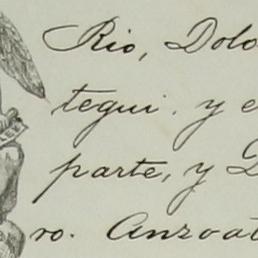 Rio, Dolo
tegui. y e
parte, y D
ro. Anzoat